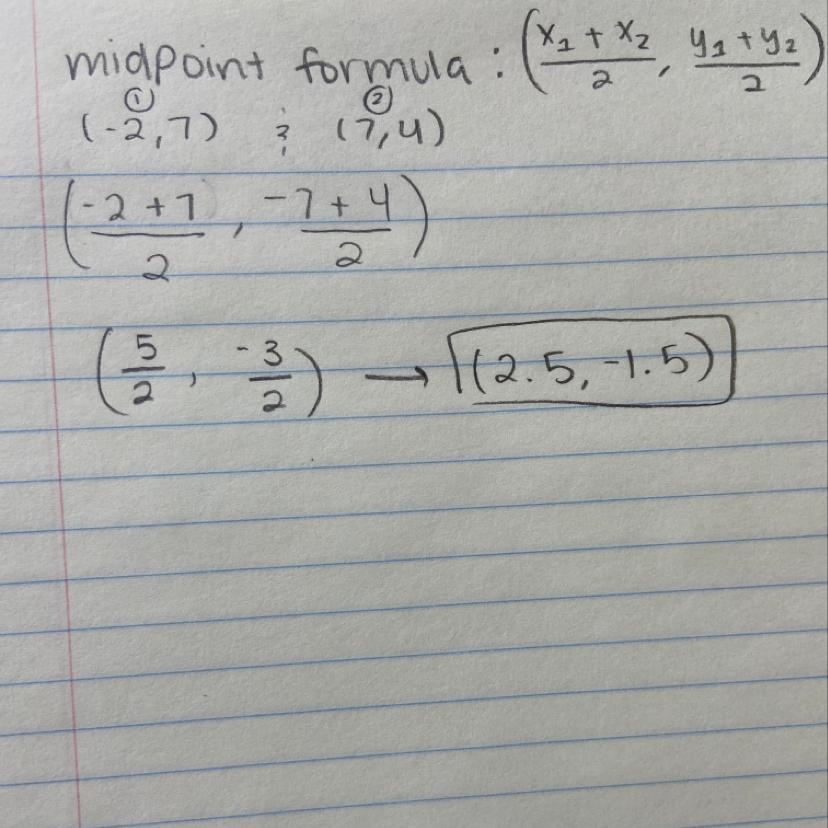 midpoint formula : (x₁ + x₂ / 2, y₁ + y₂ / 2)
① ②
(-2,7) & (7,4)
(-2 + 7 / 2, -7 + 4 / 2)
(5/2, -3/2) → (2.5, -1.5)